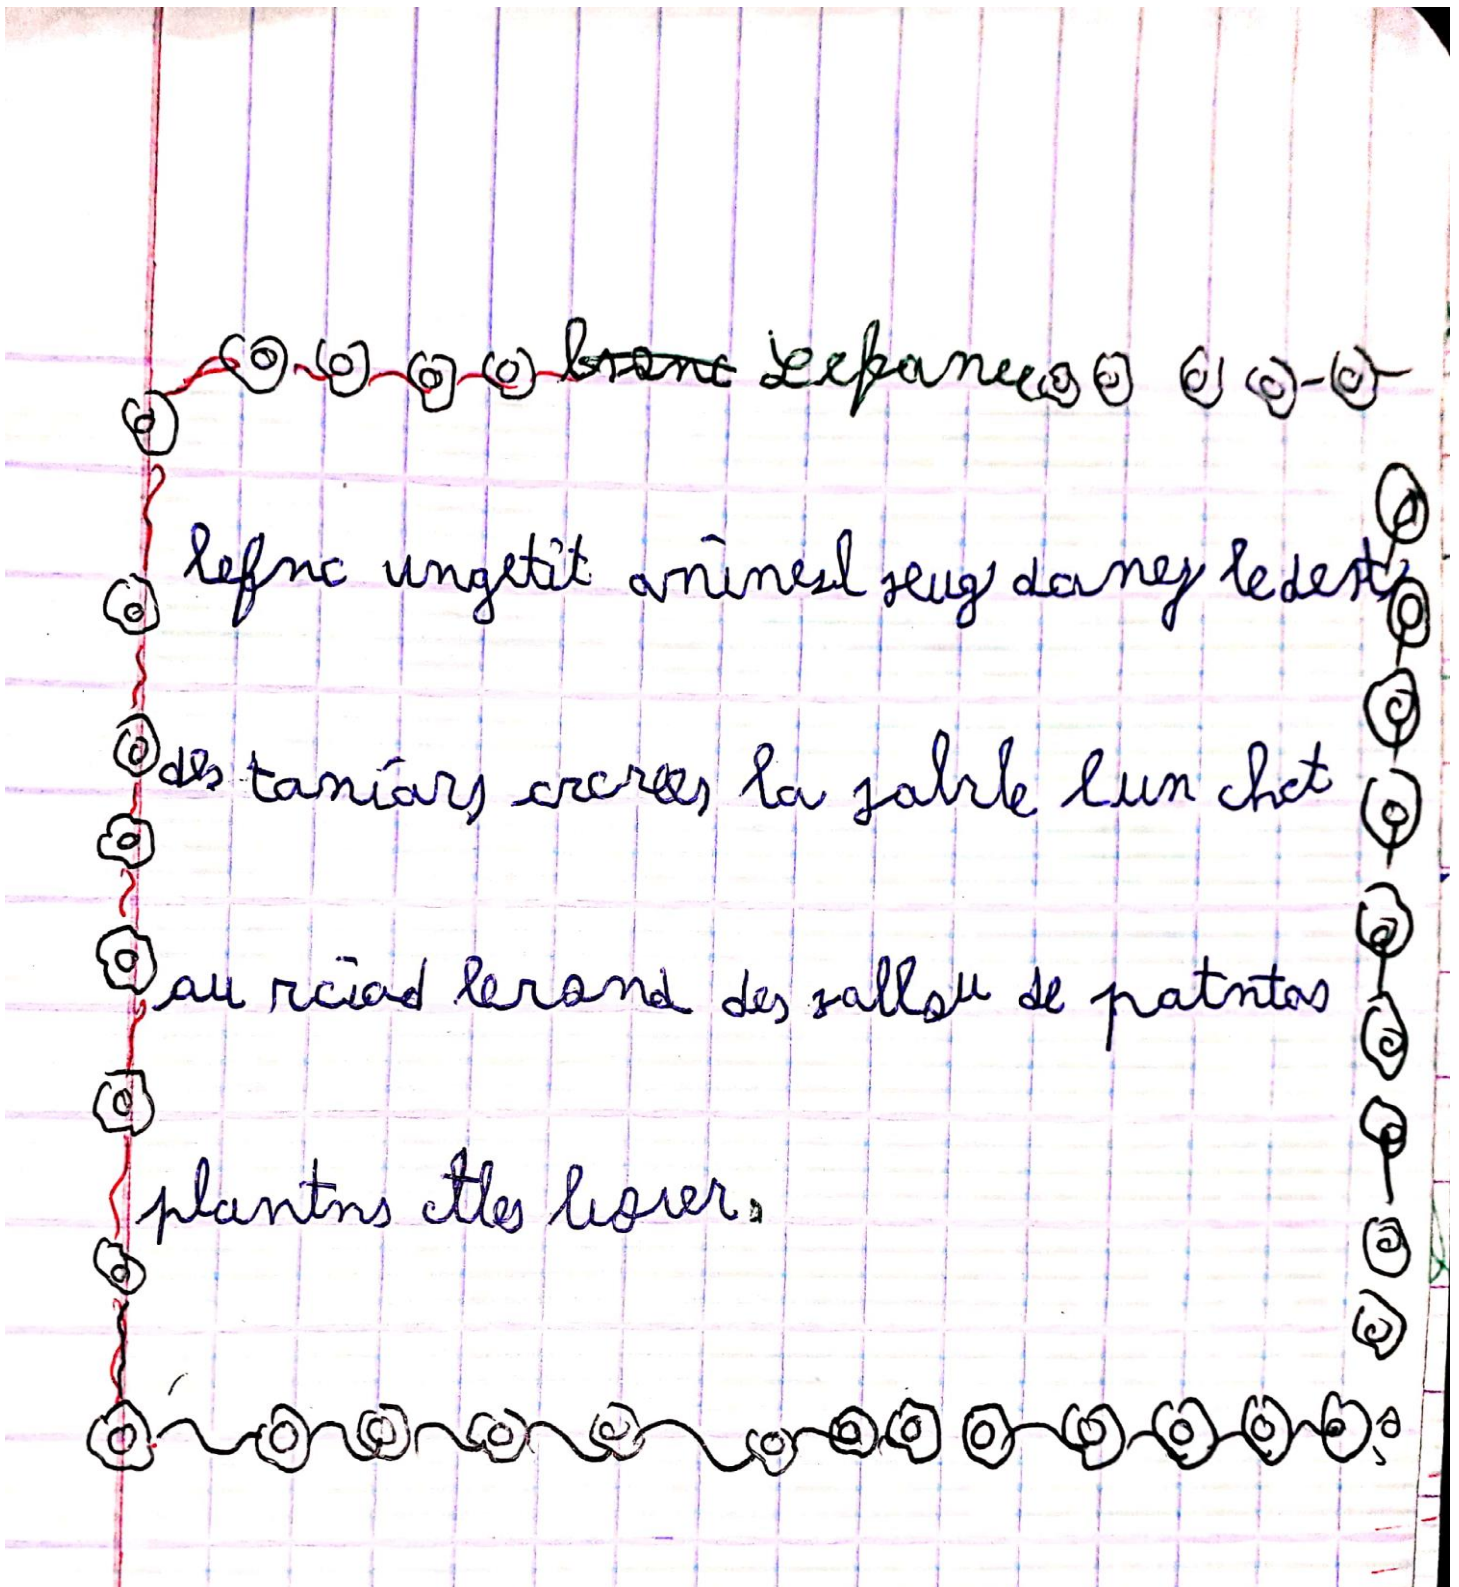 Lefanec
lefnc ungetit aninesl seug daney ledest
des taniars crcrees la sable lun chct
au rciad lerand des sallou de patntas
plantns etles liover.